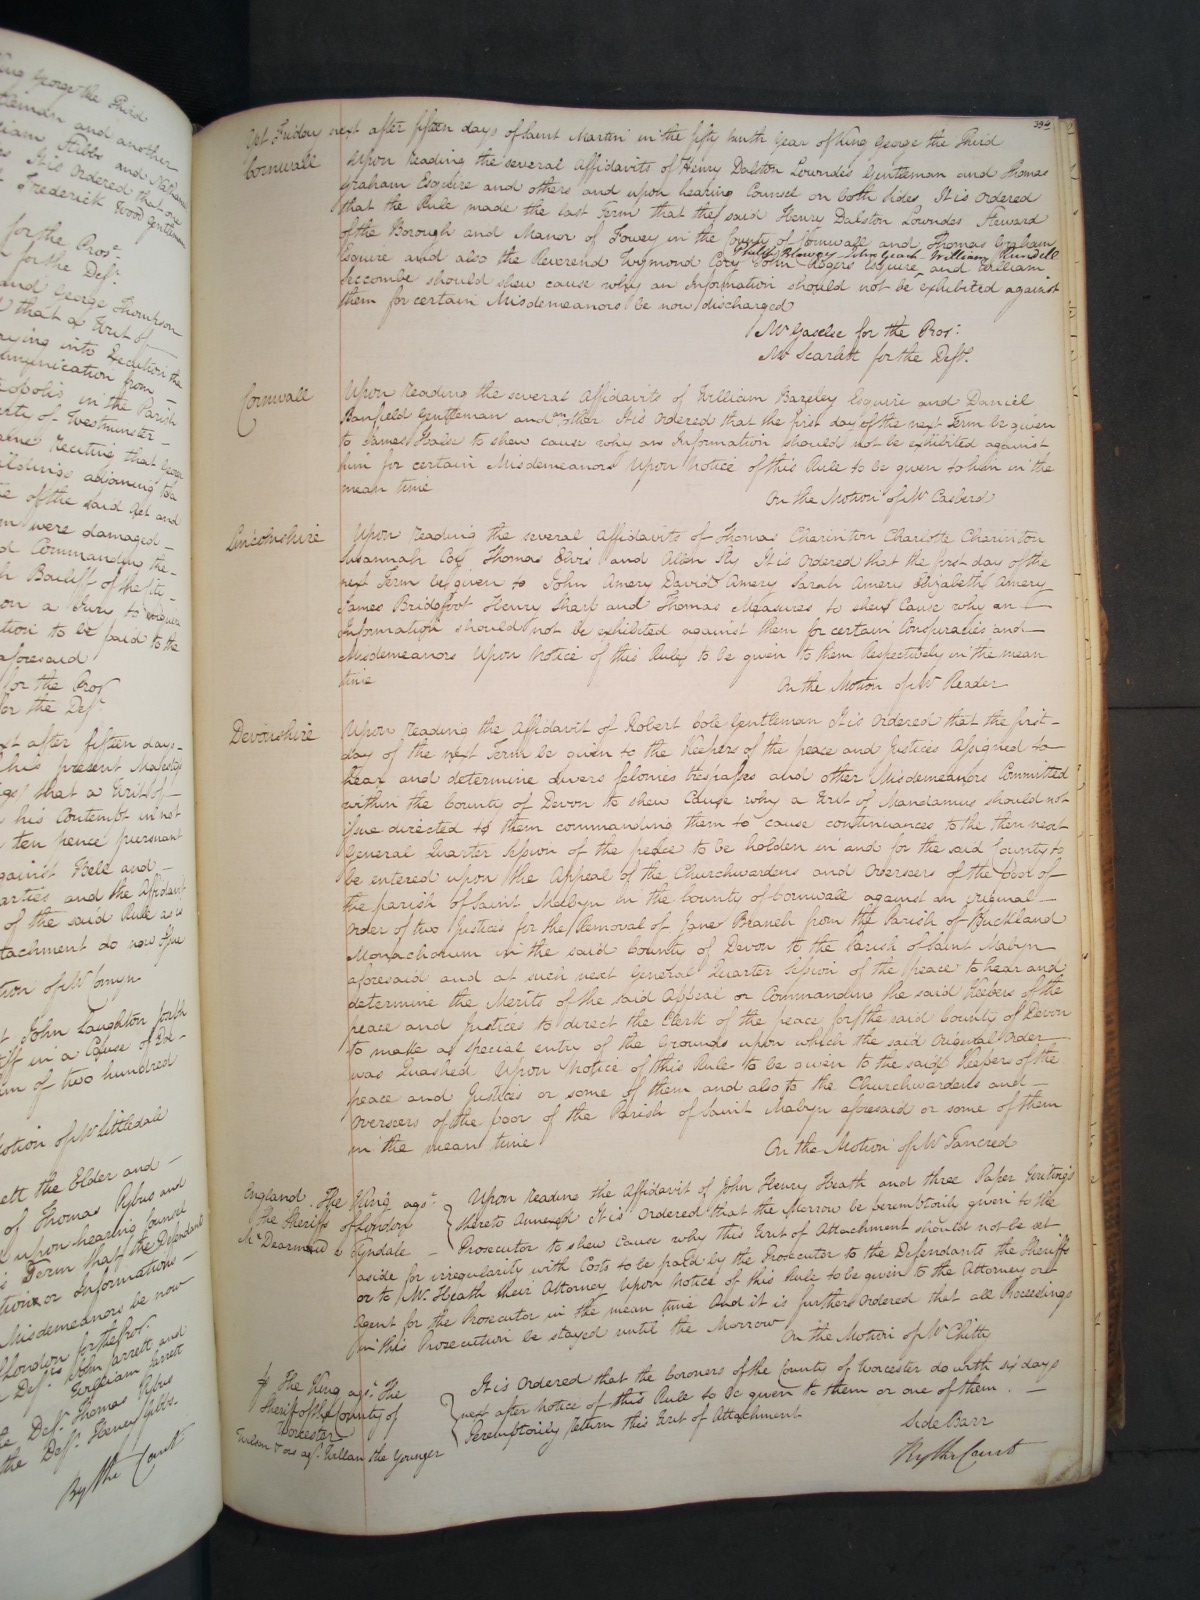 King George the Third
and another
Fibbs and
It is Ordered that
Frederick Wood Gentleman
for the Prosr
for the Deft
and George Thompson
that a Writ of
into Execution the
Communication from
in the Parish
of Westminster
adjoining to a
of the said Act and
were damaged
Commanding the
Bailiff of the
on a Jury to enquire
to be paid to the
aforesaid
for the Prosr
for the Deft
after fifteen days
his present Majesty
that a Writ of
his Contempt in not
ten hence pursuant
against Bell and
parties and the Affidavit
of the said Rule as is
Attachment do now Issue
John Laughton
in a Cause of
of two hundred
Motion of Mr Littledale
the Elder and
of Thomas Rybus and
upon hearing Counsel
Term that the Defendants
or Informations
Misdemeanors be now
for the Pros.
John Jarrett and
William Jarrett
Deft. Thomas Rybus
the Deft. Henry Gibbs.
By the Court
334
Yet Friday next after fifteen days of Saint Martin in the fifty ninth Year of King George the Third
Cornwall Upon reading the several Affidavits of Henry Dalston Lowndes Gentleman and Thomas
Graham Esquire and others and upon hearing Counsel on both sides It is Ordered
that the Rule made the last Term that the said Henry Dalston Lowndes Steward
of the Borough and Manor of Fowey in the County of Cornwall and Thomas Graham
Philip Blowey John Geach William Rundell
Esquire and also the Reverend Wymond Cory John Rogers Esquire and William
Seccombe should shew cause why an Information should not be exhibited against
them for certain Misdemeanors be now discharged
Mr Gaselee for the Pros:
Mr Scarlett for the Deft.
Cornwall Upon reading the several Affidavits of William Bazeley Esquire and Daniel
Banfield Gentleman and another It is Ordered that the first day of the next Term be given
to James Haise to shew cause why an Information should not be exhibited against
him for certain Misdemeanors Upon Notice of this Rule to be given to him in the
mean time
On the Motion of Mr Casberd
Lincolnshire Upon reading the several Affidavits of Thomas Charinton Charlotte Charinton
Susannah Cox Thomas Elvis and Allen Sly It is Ordered that the first day of the
next Term be given to John Amery David Amery Sarah Amery Elizabeth Amery
James Bridgfoot Henry Sharp and Thomas Measures to shew Cause why an
Information should not be exhibited against them for certain Conspiracies and
Misdemeanors Upon Notice of this Rule to be given to them Respectively in the mean
time
On the Motion of Mr Reader
Devonshire Upon reading the Affidavit of Robert Cole Gentleman It is Ordered that the first
day of the next Term be given to the Keepers of the peace and Justices Assigned to
hear and determine divers felonies trespasses and other Misdemeanors Committed
within the County of Devon to shew Cause why a Writ of Mandamus should not
issue directed to them commanding them to cause continuances to the then next
General Quarter Session of the peace to be holden in and for the said County to
be entered upon the Appeal of the Churchwardens and Overseers of the poor of
the parish of Saint Mabyn in the County of Cornwall against an original
Order of two Justices for the Removal of Jane Branch from the Parish of Buckland
Monachorum in the said County of Devon to the Parish of Saint Mabyn
aforesaid and at such next General Quarter Session of the peace to hear and
determine the Merits of the said Appeal or Commanding the said Keepers of the
peace and Justices to direct the Clerk of the peace for the said County of Devon
to make a special entry of the Grounds upon which the said Original Order
was Quashed Upon Notice of this Rule to be given to the said Keepers of the
peace and Justices or some of them and also to the Churchwardens and
Overseers of the poor of the Parish of Saint Mabyn aforesaid or some of them
in the mean time
On the Motion of Mr Tancred
England The King agt.
the Sheriffs of London
Mc Dearmaid v Tyndale
Upon reading the Affidavit of John Henry Heath and three Paper Writings
thereto Annexed It is Ordered that the Morrow be peremptorily given to the
Prosecutor to shew Cause why this Writ of Attachment should not be set
aside for irregularity with Costs to be paid by the Prosecutor to the Defendants the Sheriffs
or to Mr. Heath their Attorney Upon Notice of this Rule to be given to the Attorney or
Agent for the Prosecutor in the mean time And it is further Ordered that all Proceedings
in this Prosecution be stayed until the Morrow On the Motion of Mr Chitty
The King agt. The
Sheriff of the County of
Worcester
Wilson & ors agt. William the Younger
It is Ordered that the Coroners of the County of Worcester do with six days
next after Notice of this Rule to be given to them or one of them
Peremptorily return this Writ of Attachment
Side Barr
By the Court